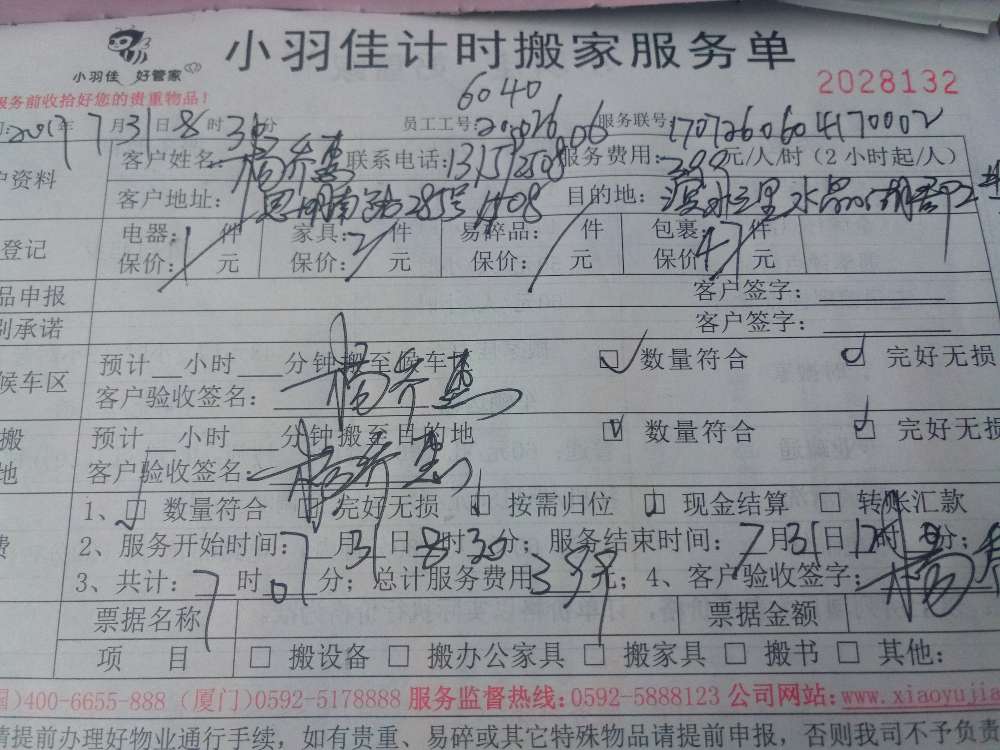 小羽佳计时搬家服务单
小羽佳 好管家
2028132
服务前收拾好您的贵重物品!
6040
2017年7月31日8时30分 员工工号: 服务联号:
户资料 客户姓名: 联系电话: 服务费用:399元/人/时(2小时起/人)
客户地址:思明南路285号 目的地:
登记 电器:1件 家具:2件 易碎品:/件 包裹:47件
保价: 元 保价: 元 保价: 元 保价: 元
品申报 客户签字:
别承诺 客户签字:
候车区 预计 小时 分钟搬至候车 数量符合 完好无损
客户验收签名:
搬 预计 小时 分钟搬至目的地 数量符合 完好无损
地 客户验收签名:
1、 数量符合 完好无损 按需归位 现金结算 转账汇款
费 2、服务开始时间:7月31日8时30分; 服务结束时间:7月31日 时 分;
3、共计: 时 分; 总计服务费用 元; 4、客户验收签字:
票据名称 票据金额
项目 搬设备 搬办公家具 搬家具 搬书 其他:
国)400-6655-888 (厦门)0592-5178888 服务监督热线:0592-5888123 公司网站:www.xiaoyujia
请提前办理好物业通行手续, 如有贵重、易碎或其它特殊物品请提前申报, 否则我司不予负责